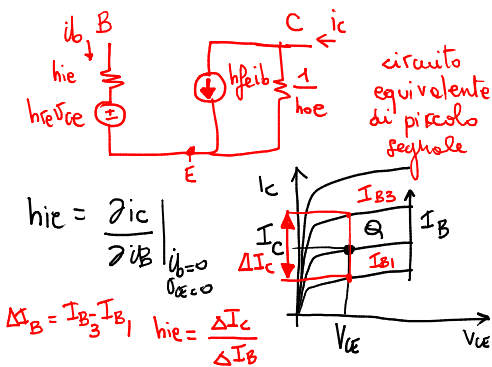 ib B
hie
hre vce
hfeib
C
ic
1/hoe
E
circuito
equivalente
di piccolo
segnale
hie = ∂ic/∂iB | ib=0 vce=0
ΔIB = IB3-IB1
hie = ΔIc/ΔIB
Ic
IB3
Ic
ΔIc
Q
IB
IB1
VCE
VCE